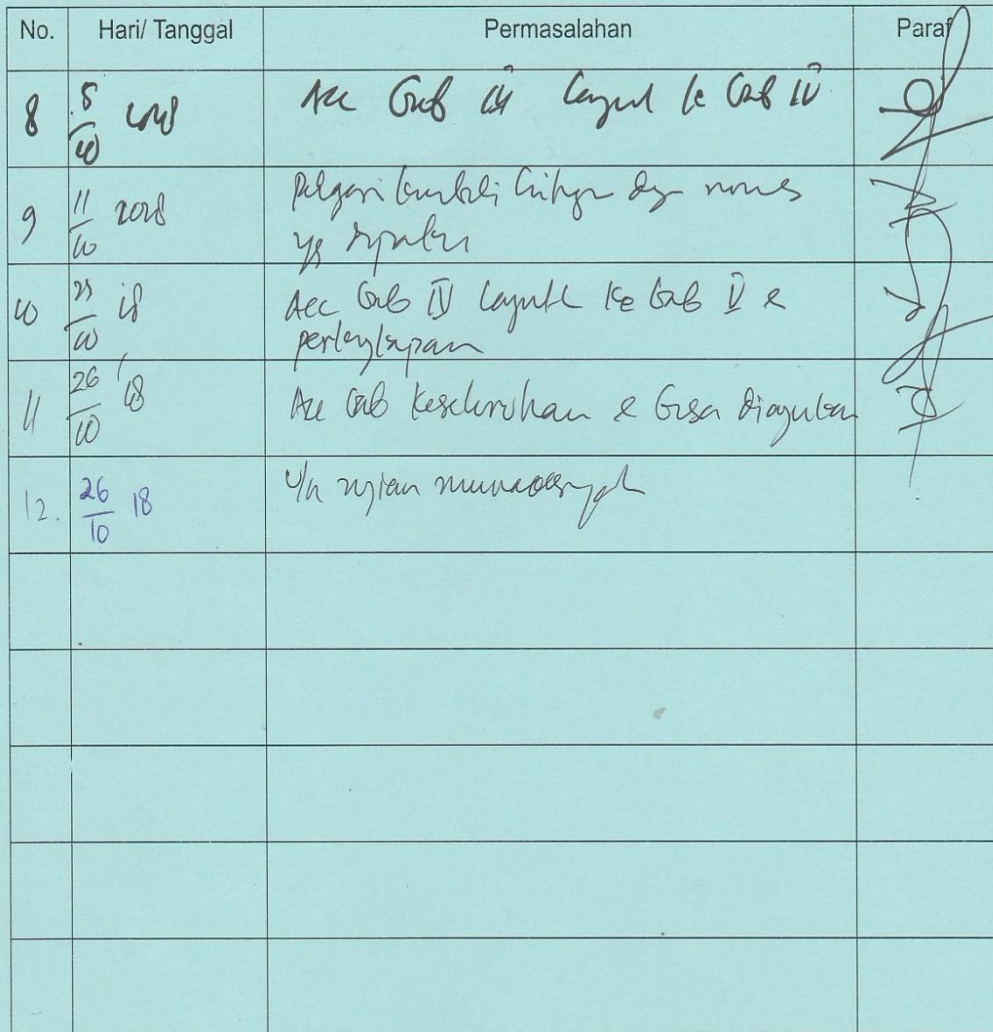 No. Hari/ Tanggal Permasalahan Paraf
8 5/10 2018 Acc Bab III lanjut ke Bab IV
9 11/10 2018 kembali dgn
yg
10 /10 18 Acc Bab IV lanjutk ke Bab V &
perlengkapan
11 26/10 18 Acc Bab keseluruhan & bisa diajukan
12. 26/10 18 u/k ujian munaqasyah